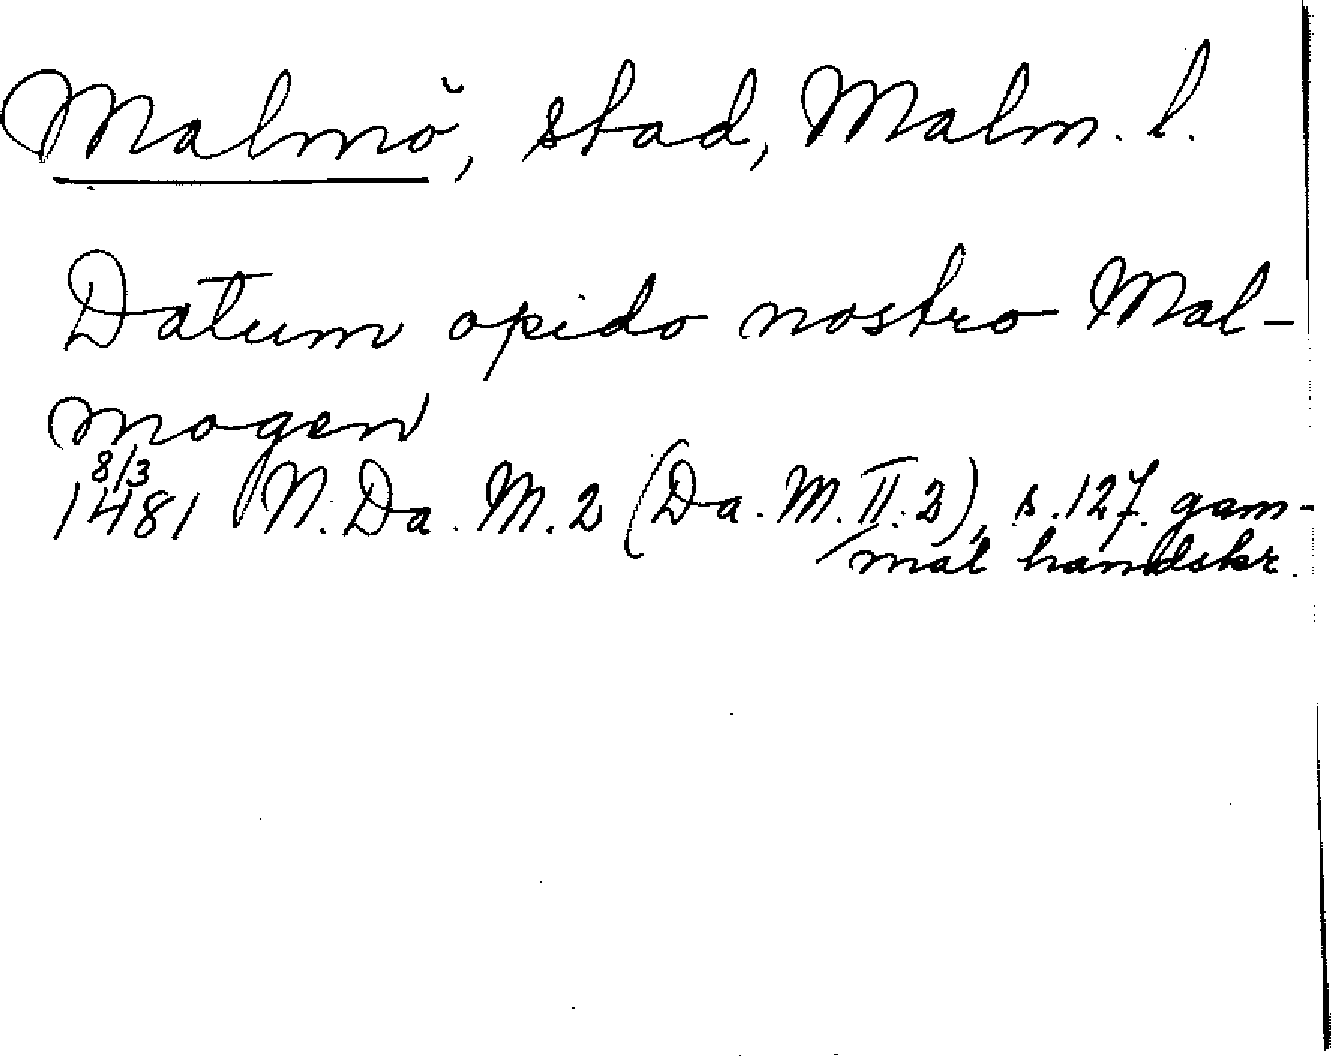 Malmö, stad, Malm. l.
Datum opido nostro Mal-
mogen
8/3
1481 N. Da. M. 2 (Da. M. II. 2), s. 127. gam-
mal handskr.